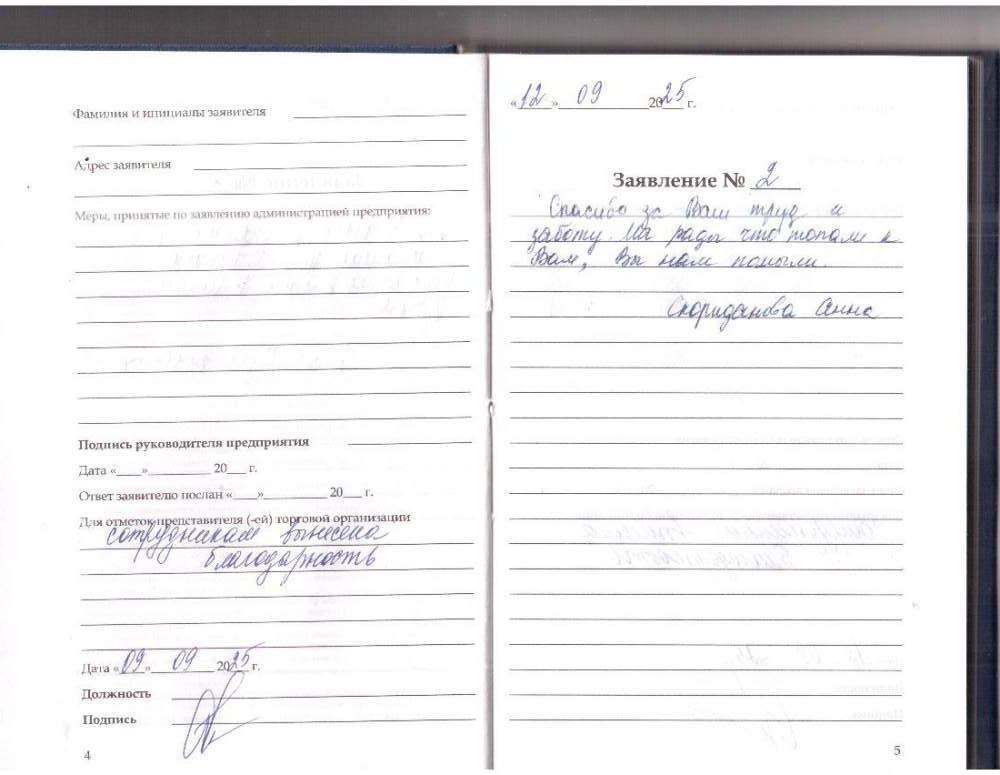 Фамилия и инициалы заявителя
Адрес заявителя
Меры, принятые по заявлению администрацией предприятия:
Подпись руководителя предприятия
Дата «____»__________ 20___ г.
Ответ заявителю послан «____»__________ 20___ г.
Для отметок представителя (-ей) торговой организации
сотрудникам вынесена
благодарность
Дата «09» 09 2025 г.
Должность
Подпись
4
«12» 09 2025 г.
Заявление № 2
Спасибо за Ваш труд и
заботу. Мы рады что попали к
Вам, Вы нам помогли.
Анна
5